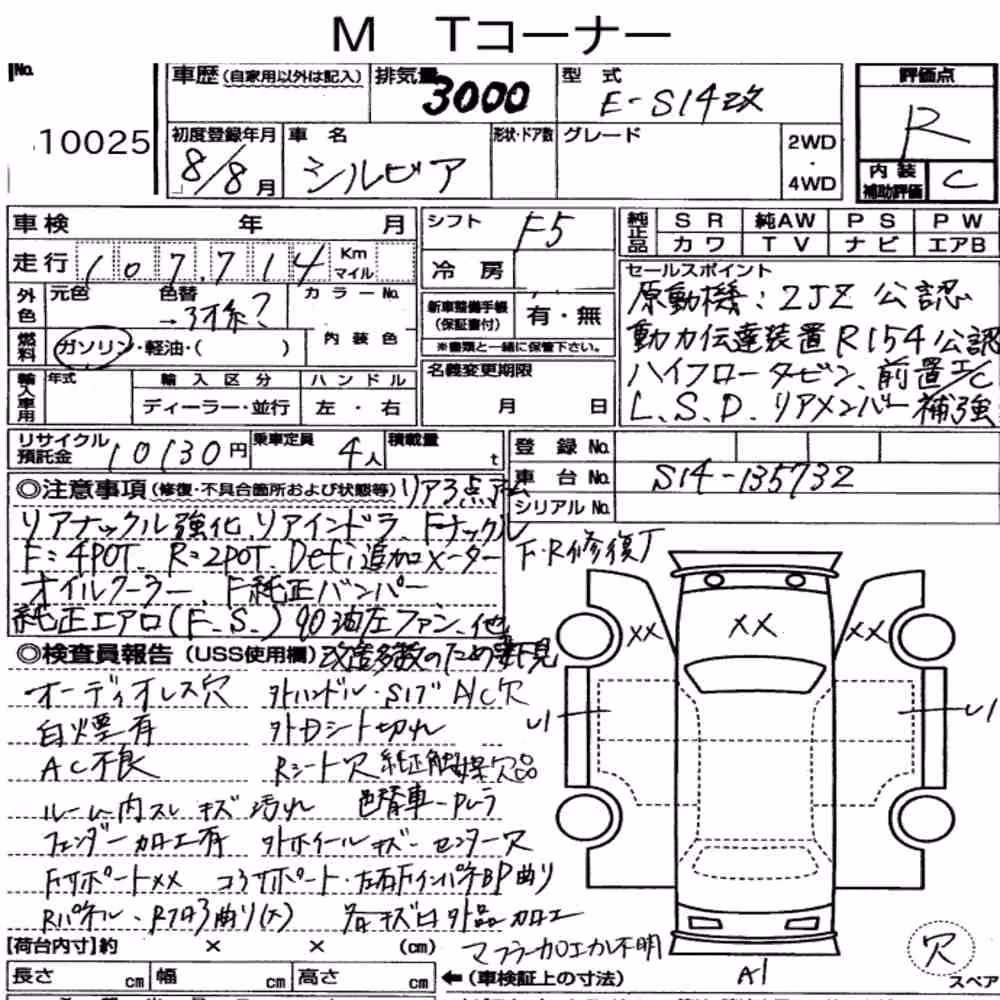 M Tコーナー
No.
10025
車歴 (自家用以外は記入)
排気量 3000
型式 E-S14改
評価点 R
初度登録年月 8/8月
車名 シルビア
形状・ドア数
グレード
2WD・4WD
内装補助評価 C
車検 年 月
走行 107,714 Km マイル
シフト F5
冷房
純正品 SR 純AW PS PW
カワ TV ナビ エアB
外色 元色 色替 → 3オ係?
カラーNo.
内装色
燃料 ガソリン・軽油・( )
新車整備手帳(保証書付) 有・無
※書類と一緒に保管下さい。
セールスポイント
原動機:2JZ 公認
動力伝達装置R154公認
ハイフロータービン、前置I/C
L.S.D. リアメンバー補強
輸入車用 年式 輸入区分 ハンドル
ディーラー・並行 左・右
名義変更期限
月 日
リサイクル預託金 10130円
乗車定員 4人
積載量 t
登録No.
車台No. S14-135732
シリアルNo.
◎注意事項 (修復・不具合箇所および状態等) リア3点アーム
リアナックル強化、リアインドラ、Fナックル
F=4POT、R=2POT、Defi追加メーター
オイルクーラー、F純正バンパー
純正エアロ(F.S.) 90油圧ファン、他
F・R修復了
◎検査員報告 (USS使用欄) 改造多数のため要下見
オーディオレス穴 外ハンドル・Sリブ A/C穴
白煙有 外Dシート切れ
AC不良 Rシート欠 純正触媒欠品
ルーム内スレ キズ 汚れ 色替車-Pムラ
フェンダー加工有 外ホイールキズ-センター欠
Fサポートxx コアサポート・左右FインパネBP曲り
Rパネル・Rフロア曲り(大) 各キズ凹外品加工
マフラー加工か不明
xx xx xx
U1 U1
A1
穴
スペア
【荷台内寸】約 × × (cm)
長さ cm 幅 cm 高さ cm ←(車検証上の寸法)